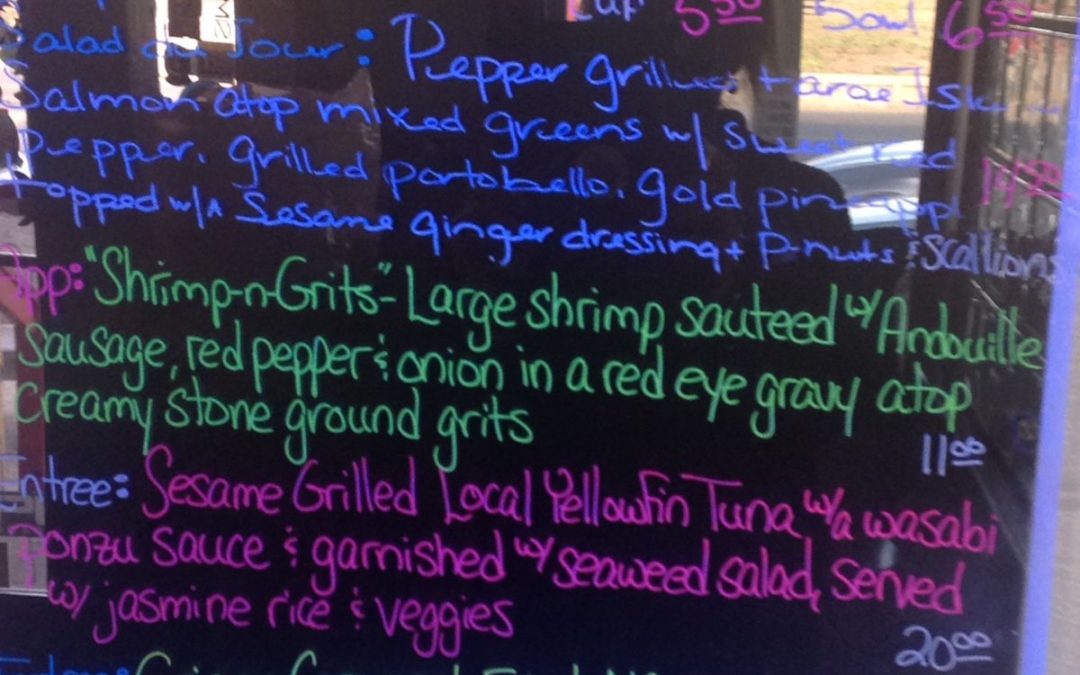 Cup 5.50 Bowl 6.50
Salad du Jour: Pepper grilled Faroe Island
Salmon atop mixed greens w/ sweet red
Pepper, grilled portobello, gold pineappl 14.00
topped w/a Sesame ginger dressing + p-nuts & scallions
App: "Shrimp-n-Grits"- Large shrimp sauteed w/ Andouille
sausage, red pepper & onion in a red eye gravy atop
creamy stone ground grits
11.00
Entree: Sesame Grilled Local Yellowfin Tuna w/a wasabi
Ponzu sauce & garnished w/ seaweed salad, served
w/ jasmine rice & veggies
20.00